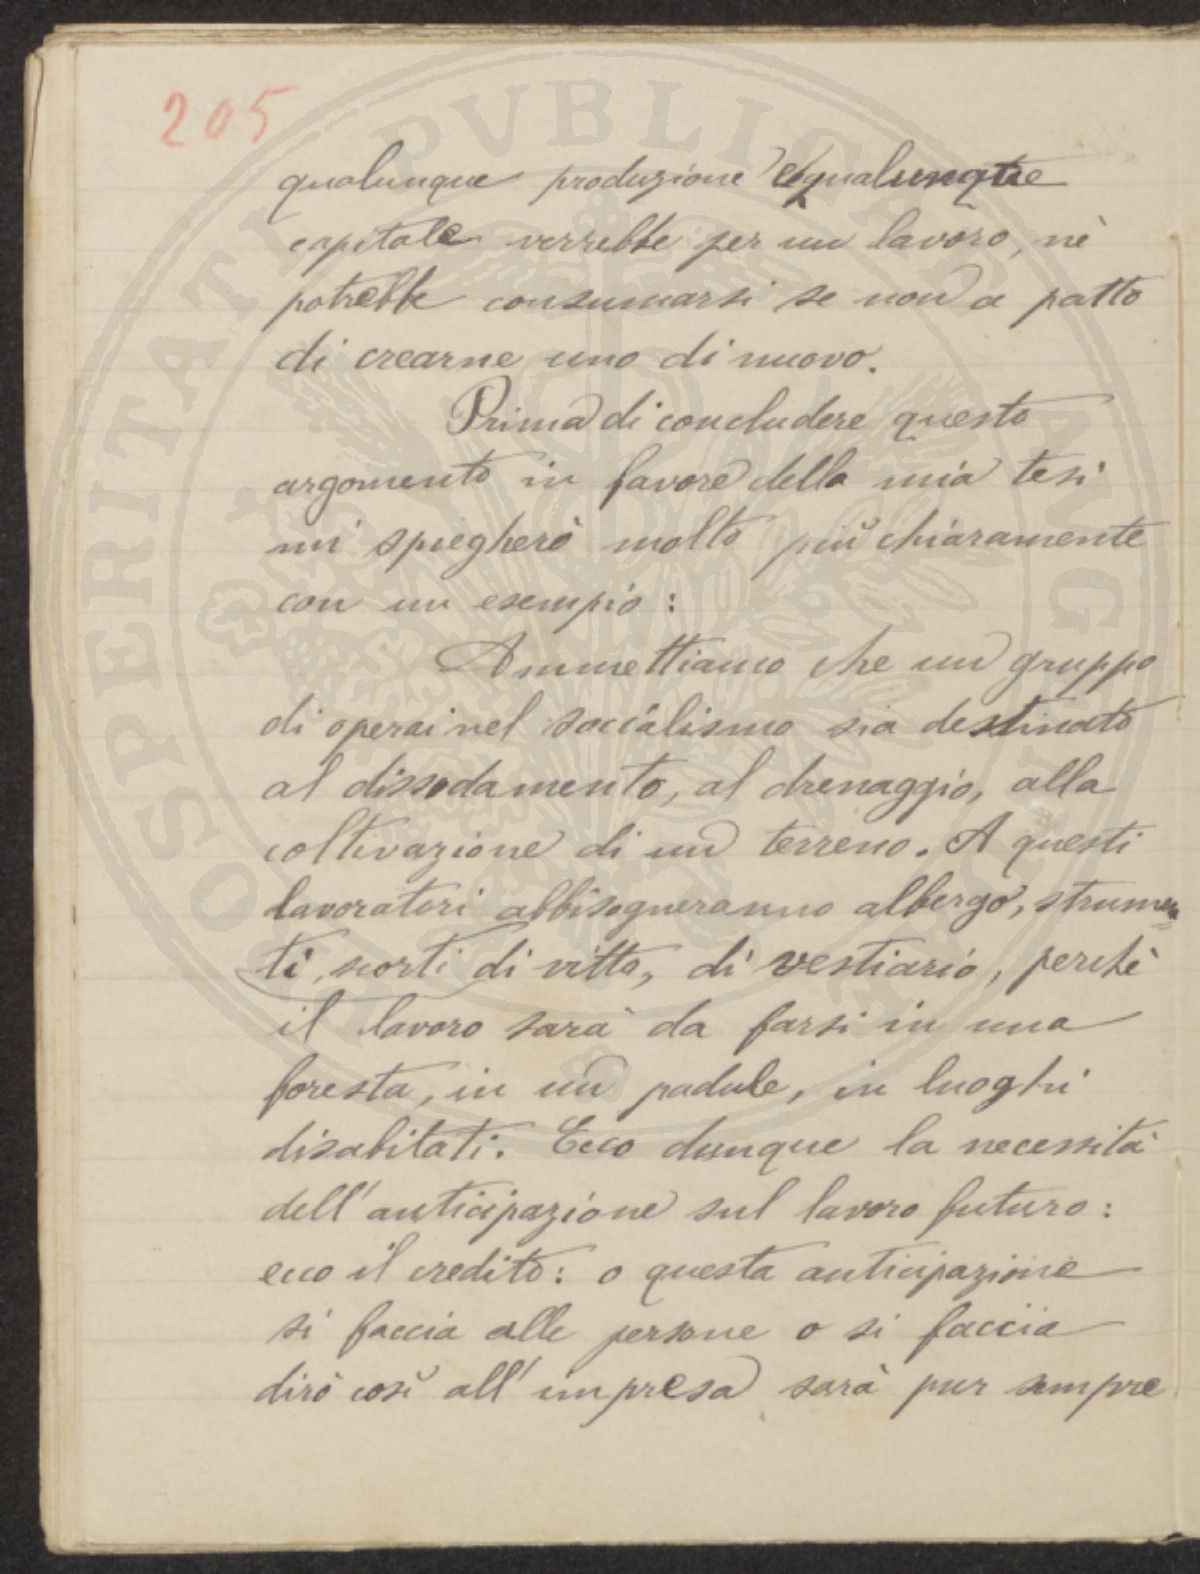 205
qualunque produzione e qualunque
capitale verrebbe per un lavoro, nè
potrebbe consumarsi se non a patto
di crearne uno di nuovo.
Prima di concludere questo
argomento in favore della mia tesi
mi spiegherò molto più chiaramente
con un esempio:
Ammettiamo che un gruppo
di operai nel soccialismo sia destinato
al dissodamento, al drenaggio, alla
coltivazione di un terreno. A questi
lavoratori abbisogneranno albergo, strumen=
ti, scorti di vitto, di vestiario, perchè
il lavoro sarà da farsi in una
foresta, in un padule, in luoghi
disabitati. Ecco dunque la necessità
dell'anticipazione sul lavoro futuro:
ecco il credito: o questa anticipazione
si faccia alle persone o si faccia
dirò così all'impresa sarà pur sempre